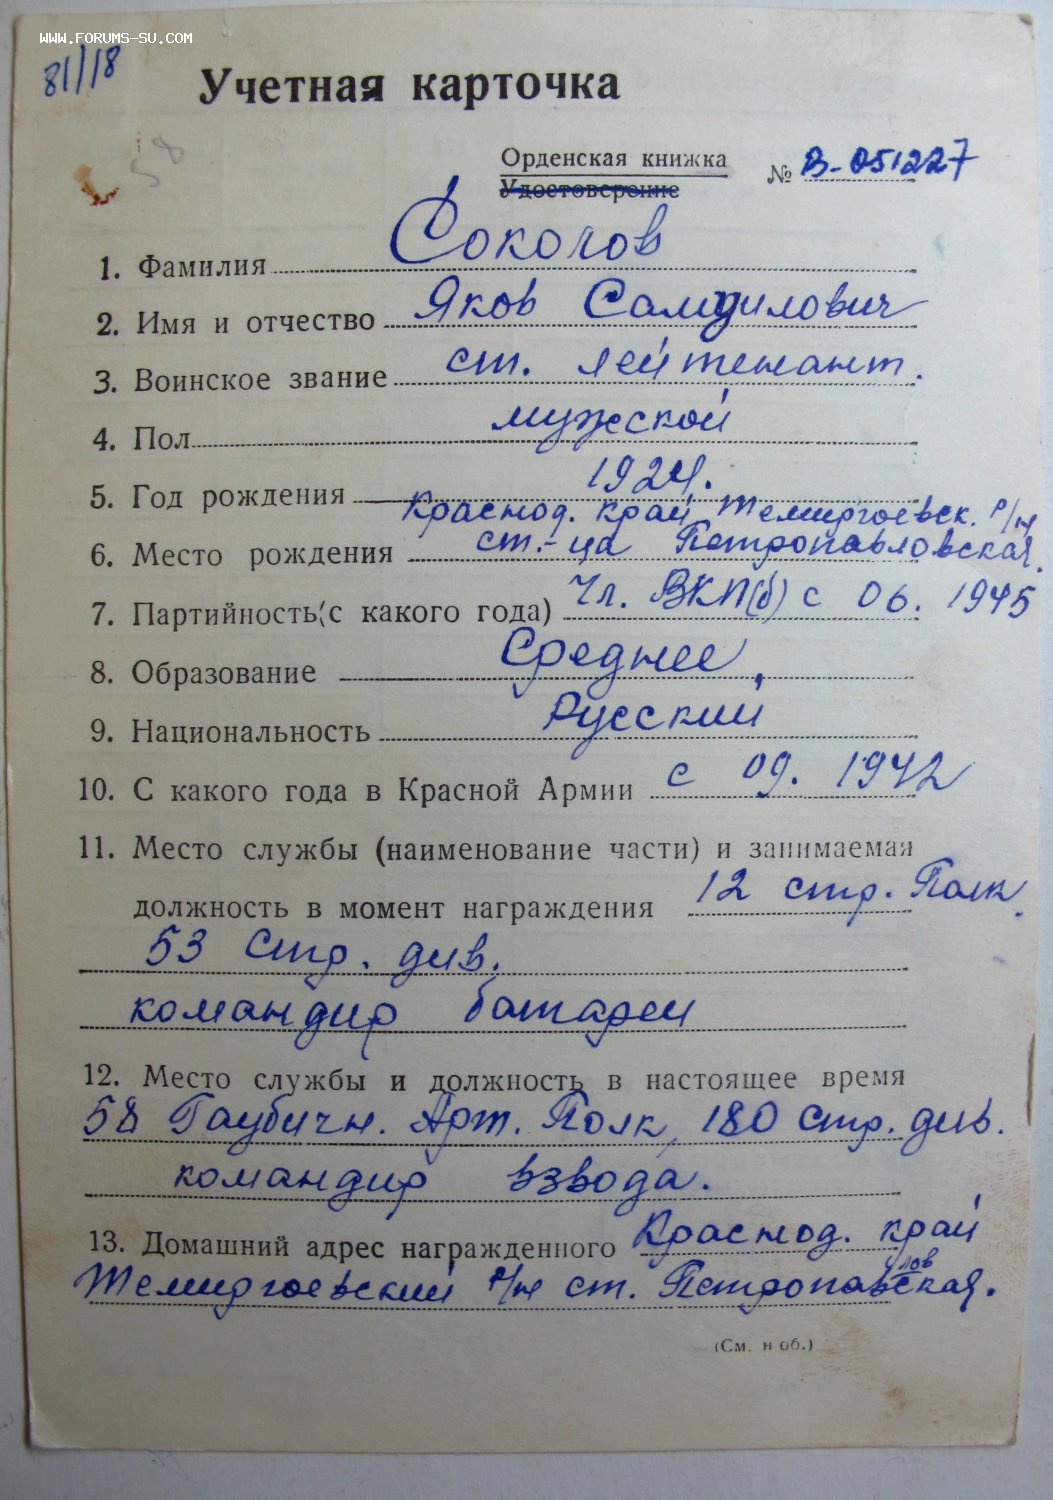 WWW.FORUMS-SU.COM
81/18
58
Учетная карточка
Орденская книжка № В-051227
Удостоверение
1. Фамилия Соколов
2. Имя и отчество Яков Самуилович
3. Воинское звание ст. лейтенант.
4. Пол мужской
5. Год рождения 1924.
Краснод. край Темиргоевск. р/н
6. Место рождения ст.-ца Петропавловская.
7. Партийность (с какого года) Чл. ВКП(б) с 06. 1945
8. Образование Среднее
9. Национальность Русский
10. С какого года в Красной Армии с 09. 1942
11. Место службы (наименование части) и занимаемая
должность в момент награждения 12 стр. Полк.
53 Стр. див.
командир батареи
12. Место службы и должность в настоящее время
58 Гаубичн. Арт. Полк, 180 Стр. див.
командир взвода.
13. Домашний адрес награжденного Краснод. край
Темиргоевский р/н ст. Петропавловская.
(См. н об.)